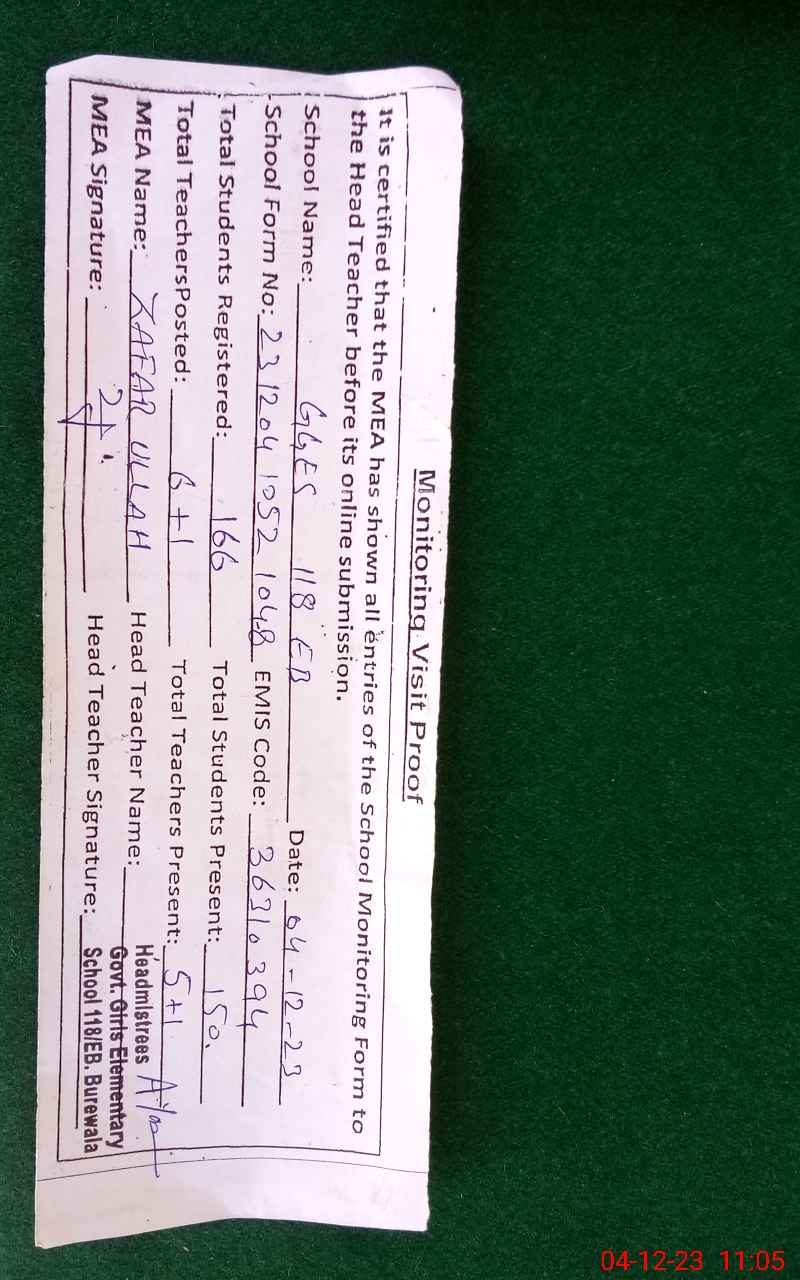 Monitoring Visit Proof
It is certified that the MEA has shown all entries of the School Monitoring Form to
the Head Teacher before its online submission.
School Name: GGES 118 EB Date: 04-12-23
School Form No: 231204 1052 1048 EMIS Code: 36310394
Total Students Registered: 166 Total Students Present: 150.
Total TeachersPosted: 6+1 Total Teachers Present: 5+1
MEA Name: ZAFAR ULLAH Head Teacher Name:
MEA Signature: Head Teacher Signature:
Headmistrees
Govt. Girls Elementary
School 118/EB. Burewala
04-12-23 11:05